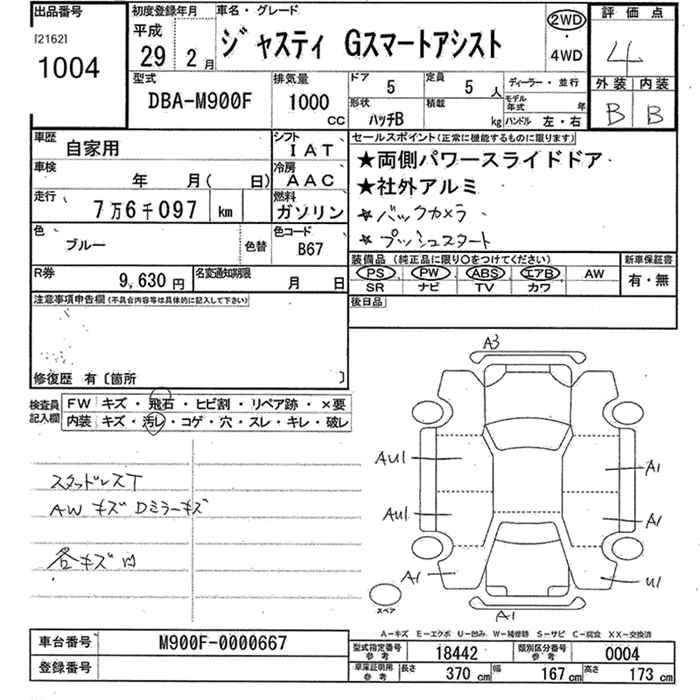 出品番号
[2162]
1004
初度登録年月
平成
29 2月
車名・グレード
ジャスティ Gスマートアシスト
2WD
・
4WD
評価点
4
外装 内装
B B
型式
DBA-M900F
排気量
1000
CC
ドア
5
定員
5 人
形状
ハッチB
積載
kg
ディーラー・並行
モデル年式 年
ハンドル 左・右
車歴
自家用
シフト
IAT
車検
年 月( 日)
冷房
AAC
走行
7万6千097 km
燃料
ガソリン
色
ブルー
色替
色コード
B67
R券
9,630 円
名変通知期限
月 日
セールスポイント(正常に機能するものに限ります)
★両側パワースライドドア
★社外アルミ
★バックカメラ
★プッシュスタート
装備品(純正品に限り○をつけてください)
PS PW ABS エアB AW
SR ナビ TV カワ
新車保証書
有・無
後日品
注意事項申告欄(不具合内容等は具体的に記入して下さい)
修復歴 有〔箇所 〕
検査員記入欄
FW キズ・飛石・ヒビ割・リペア跡・×要
内装 キズ・汚レ・コゲ・穴・スレ・キレ・破レ
スタッドレスT
AWキズ Dミラーキズ
各キズ凹
A3
AU1
A1
AU1
A1
A1
U1
A1
スペア
A-キズ E-エクボ U-凹み W-補修跡 S-サビ C-腐食 XX-交換済
車台番号
M900F-0000667
登録番号
型式指定番号
参考
18442
類別区分番号
参考
0004
車庫証明用
参考
長さ 370 cm 幅 167 cm 高さ 173 cm